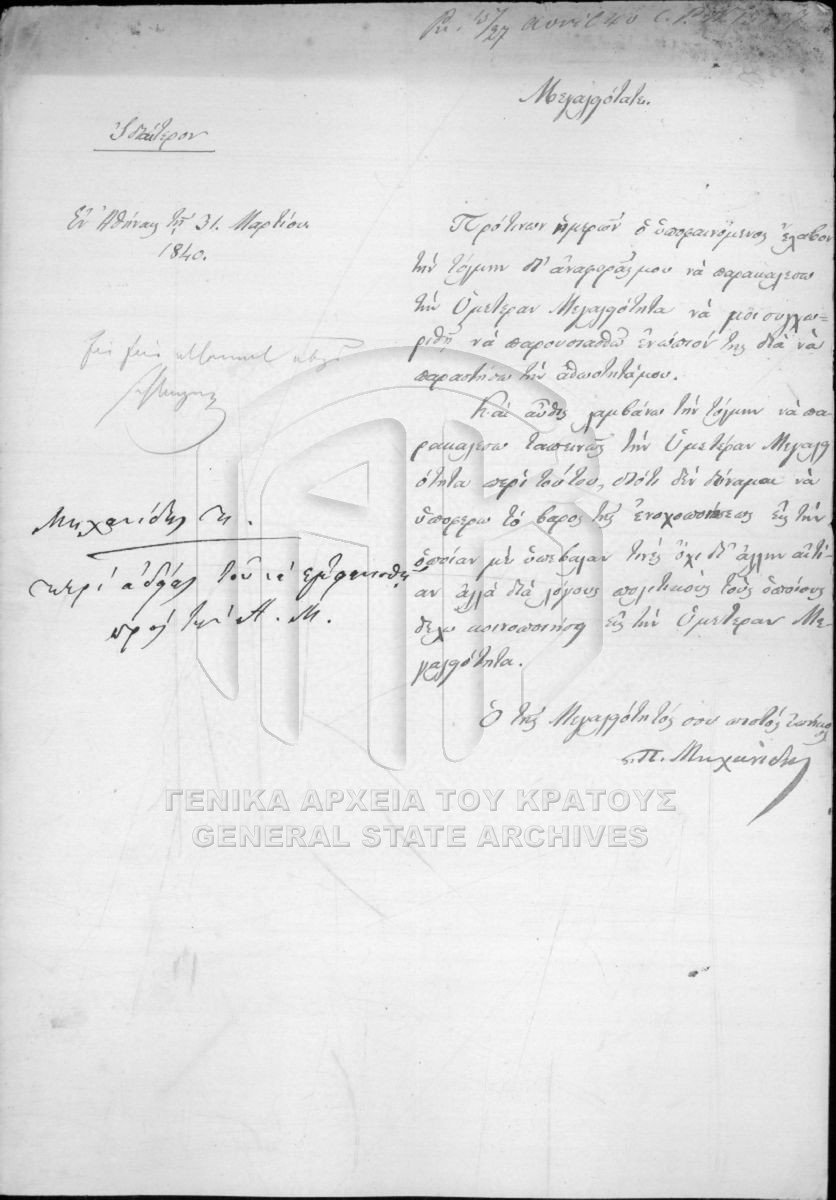 Μεγαλειότατε.
Ιδιαίτερον
Ἐν Ἀθήναις τῇ 31. Μαρτίου
1840.
Πρότινων ἡμερῶν ὁ ὑποφαινόμενος ἔλαβον
τὴν τόλμην δι' ἀναφορᾶς μου νὰ παρακαλέσω
τὴν Ὑμετέραν Μεγαλειότητα νὰ μοι συγχω=
ρηθῇ νὰ παρουσιασθῶ ἐνώπιόν της διὰ νὰ
παραστήσω τὴν ἀθωότητά μου.
Καὶ αὖθις λαμβάνω τὴν τόλμην νὰ πα-
ρακαλέσω ταπεινῶς τὴν Ὑμετέραν Μεγαλει
ότητα περὶ τούτου, διότι δὲν δύναμαι νὰ
ὑποφέρω τὸ βάρος τῆς ἐνοχοποιήσεως εἰς τὴν
ὁποίαν μὲ ὑπέβαλαν τινὲς ὄχι δι' ἄλλην αἰτί-
αν ἀλλὰ διὰ λόγους πολιτικοὺς τοὺς ὁποίους
θέλω κοινοποιήσει εἰς τὴν Ὑμετέραν Με-
γαλειότητα.
Ὁ τῆς Μεγαλειότητός σου πιστὸς ὑπήκοος
Π. Μηχανίδης
Μηχανίδης Π.
περὶ ἀδείας τοῦ νὰ ἐμφανισθῇ
πρὸς τὴν Α. Μ.
ΓΕΝΙΚΑ ΑΡΧΕΙΑ ΤΟΥ ΚΡΑΤΟΥΣ
GENERAL STATE ARCHIVES